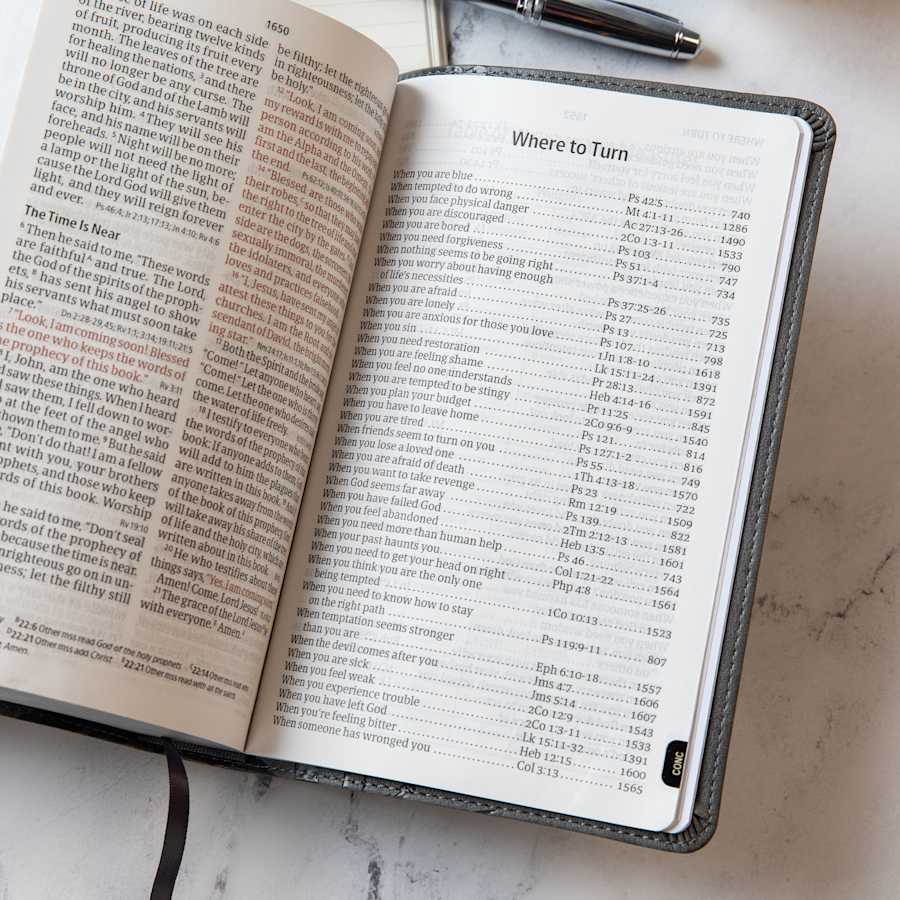 1650
of life was on each side
of the river, bearing twelve kinds
of fruit, producing its fruit every
month. The leaves of the tree are
for healing the nations, ³ and there
will no longer be any curse. The
throne of God and of the Lamb will
be in the city, and his servants will
worship him. ⁴ They will see his
face, and his name will be on their
foreheads. ⁵ Night will be no more;
people will not need the light of
a lamp or the light of the sun, be-
cause the Lord God will give them
light, and they will reign forever
and ever. Ps 46:4; Jr 2:13; 17:13; Jn 4:10; Rv 4:6
The Time Is Near
⁶ Then he said to me, "These words
are faithful ᴬ and true. The Lord,
the God of the spirits of the proph-
ets, ᴮ has sent his angel to show
his servants what must soon take
place." Dn 2:28-29,45; Rv 1:1; 3:14; 19:11; 21:5
⁷ "Look, I am coming soon! Blessed
is the one who keeps the words of
the prophecy of this book." Rv 3:11
⁸ I, John, am the one who heard
saw these things. When I heard
saw them, I fell down to wor-
at the feet of the angel who
shown them to me. ⁹ But he said
"Don't do that! I am a fellow
with you, your brothers
prophets, and those who keep
words of this book. Worship
Rv 19:10
he said to me, "Don't seal
words of the prophecy of
because the time is near.
unrighteous go on in un-
ness; let the filthy still
be filthy; let the righteous
in righteousness; let the
be holy."
¹² "Look, I am coming
my reward is with me to repay
person according to his
am the Alpha and the Omega,
first and the last, the beginning
the end.
¹⁴ "Blessed are those who
their robes, ᶜ so that they may
the right to the tree of life and
enter the city by the gates.
side are the dogs, the sorcerers,
sexually immoral, the murderers,
the idolaters, and everyone
loves and practices falsehood.
¹⁶ "I, Jesus, have sent my
attest these things to you
churches. I am the Root and
scendant of David, the bright
ing star."
¹⁷ Both the Spirit and the bride
"Come!" Let anyone who hears
"Come!" Let the one who is thirsty
come. Let the one who desires
the water of life freely.
¹⁸ I testify to everyone who
the words of the prophecy of
book: If anyone adds to them,
will add to him the plagues
are written in this book. ¹⁹ And
anyone takes away from the words
of the book of this prophecy, God
will take away his share of the tree
of life and the holy city, which are
written about in this book.
²⁰ He who testifies about these
things says, "Yes, I am coming soon."
Amen! Come, Lord Jesus!
²¹ The grace of the Lord Jesus
with everyone. Amen.
ᴮ 22:6 Other mss read God of the holy prophets ᶜ 22:14 Other mss
ᴰ 22:21 Other mss add Christ ᴱ 22:21 Other mss read with all the saints
Amen.
Where to Turn
When you are blue Ps 42:5 740
When tempted to do wrong Mt 4:1-11 1286
When you face physical danger Ac 27:13-26 1490
When you are discouraged 2Co 1:3-11 1533
When you are bored Ps 103 790
When you need forgiveness Ps 51 747
When nothing seems to be going right Ps 37:1-4 734
When you worry about having enough
of life's necessities Ps 37:25-26 735
When you are afraid Ps 27 725
When you are lonely Ps 13 713
When you are anxious for those you love Ps 107 798
When you sin 1Jn 1:8-10 1618
When you need restoration Lk 15:11-24 1391
When you are feeling shame Pr 28:13 872
When you feel no one understands Heb 4:14-16 1591
When you are tempted to be stingy Pr 11:25 845
When you plan your budget 2Co 9:6-9 1540
When you have to leave home Ps 121 814
When you are tired Ps 127:1-2 816
When friends seem to turn on you Ps 55 749
When you lose a loved one 1Th 4:13-18 1570
When you are afraid of death Ps 23 722
When you want to take revenge Rm 12:19 1509
When God seems far away Ps 139 822
When you have failed God 2Tm 2:12-13 1581
When you feel abandoned Heb 13:5 1601
When you need more than human help Ps 46 743
When your past haunts you Col 1:21-22 1564
When you need to get your head on right Php 4:8 1561
When you think you are the only one
being tempted 1Co 10:13 1523
When you need to know how to stay
on the right path Ps 119:9-11 807
When temptation seems stronger
than you are Eph 6:10-18 1557
When the devil comes after you Jms 4:7 1606
When you are sick Jms 5:14 1607
When you feel weak 2Co 12:9 1543
When you experience trouble 2Co 1:3-11 1533
When you have left God Lk 15:11-32 1391
When you're feeling bitter Heb 12:15 1600
When someone has wronged you Col 3:13 1565
CONC